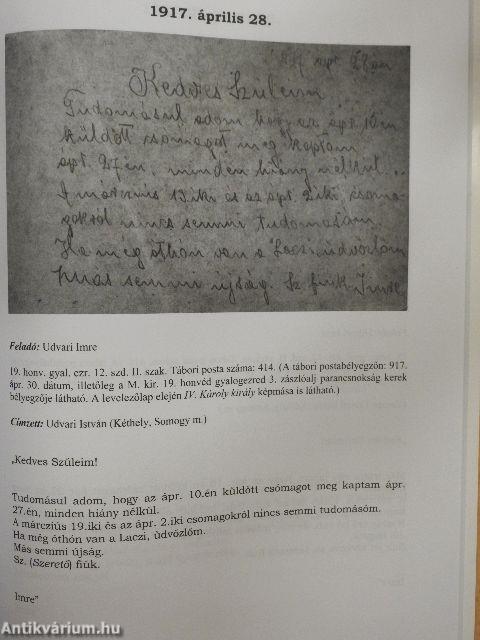 1917. április 28.
917 apr. 28án
Kedves Szüleim
Tudomásul adom hogy az ápr 10én
küldött csomagot meg kaptam
ápr. 27én, minden hiány nélkül.
A marczius 19iki és az apr. 2iki csoma-
gokról nincs semmi tudomásom
Ha még óthon van a Laczi üdvözlöm
Mas semmi újság. Sz. fiuk Imre
Feladó: Udvari Imre
19. honv. gyal. ezr. 12. szd. II. szak. Tábori posta száma: 414. (A tábori postabélyegzőn: 917.
ápr. 30. dátum, illetőleg a M. kir. 19. honvéd gyalogezred 3. zászlóalj parancsnokság kerek
bélyegzője látható. A levelezőlap elején IV. Károly király képmása is látható.)
Címzett: Udvari István (Kéthely, Somogy m.)
„Kedves Szüleim!
Tudomásul adom, hogy az ápr. 10.én küldött csómagot meg kaptam ápr.
27.én, minden hiány nélkül.
A márcziús 19.iki és az ápr. 2.iki csomagokról nincs semmi tudomásóm.
Ha még óthón van a Laczi, ùdvözlőm.
Más semmi újság.
Sz. (Szerető) fiúk.
Imre"
Antikvárium.hu